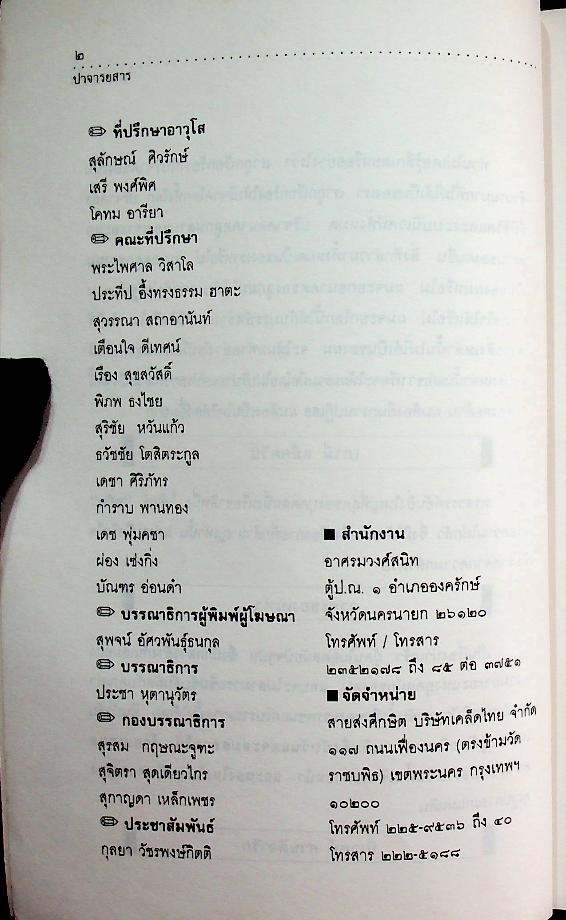 ๒
ปาจารยสาร
ที่ปรึกษาอาวุโส
สุลักษณ์ ศิวรักษ์
เสรี พงศ์พิศ
โคทม อารียา
คณะที่ปรึกษา
พระไพศาล วิสาโล
ประทีป อึ้งทรงธรรม ฮาตะ
สุวรรณา สถาอานันท์
เตือนใจ ดีเทศน์
เรือง สุขสวัสดิ์
พิภพ ธงไชย
สุริชัย หวันแก้ว
ธวัชชัย โตสิตระกูล
เดชา ศิริภัทร
กำราบ พานทอง
เดช พุ่มคชา
ผ่อง เซ่งกิ่ง
บัณฑร อ่อนดำ
บรรณาธิการผู้พิมพ์ผู้โฆษณา
สุพจน์ อัศวพันธุ์ธนกุล
บรรณาธิการ
ประชา หุตานุวัตร
กองบรรณาธิการ
สุรสม กฤษณะจูฑะ
สุจิตรา สุดเดียวไกร
สุกาญดา เหล็กเพชร
ประชาสัมพันธ์
กุลยา วัชรพงษ์กิตติ
■ สำนักงาน
อาศรมวงศ์สนิท
ตู้ป.ณ. ๑ อำเภอองครักษ์
จังหวัดนครนายก ๒๖๑๒๐
โทรศัพท์ / โทรสาร
๒๓๕๒๑๗๘ ถึง ๘๕ ต่อ ๓๗๕๑
■ จัดจำหน่าย
สายส่งศึกษิต บริษัทเคล็ดไทย จำกัด
๑๑๗ ถนนเฟื่องนคร (ตรงข้ามวัด
ราชบพิธ) เขตพระนคร กรุงเทพฯ
๑๐๒๐๐
โทรศัพท์ ๒๒๕-๙๕๓๖ ถึง ๔๐
โทรสาร ๒๒๒-๕๑๘๘